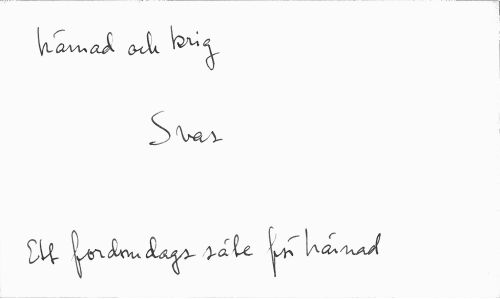 härnad och krig
Svar
Ett fordomdags säte för härnad